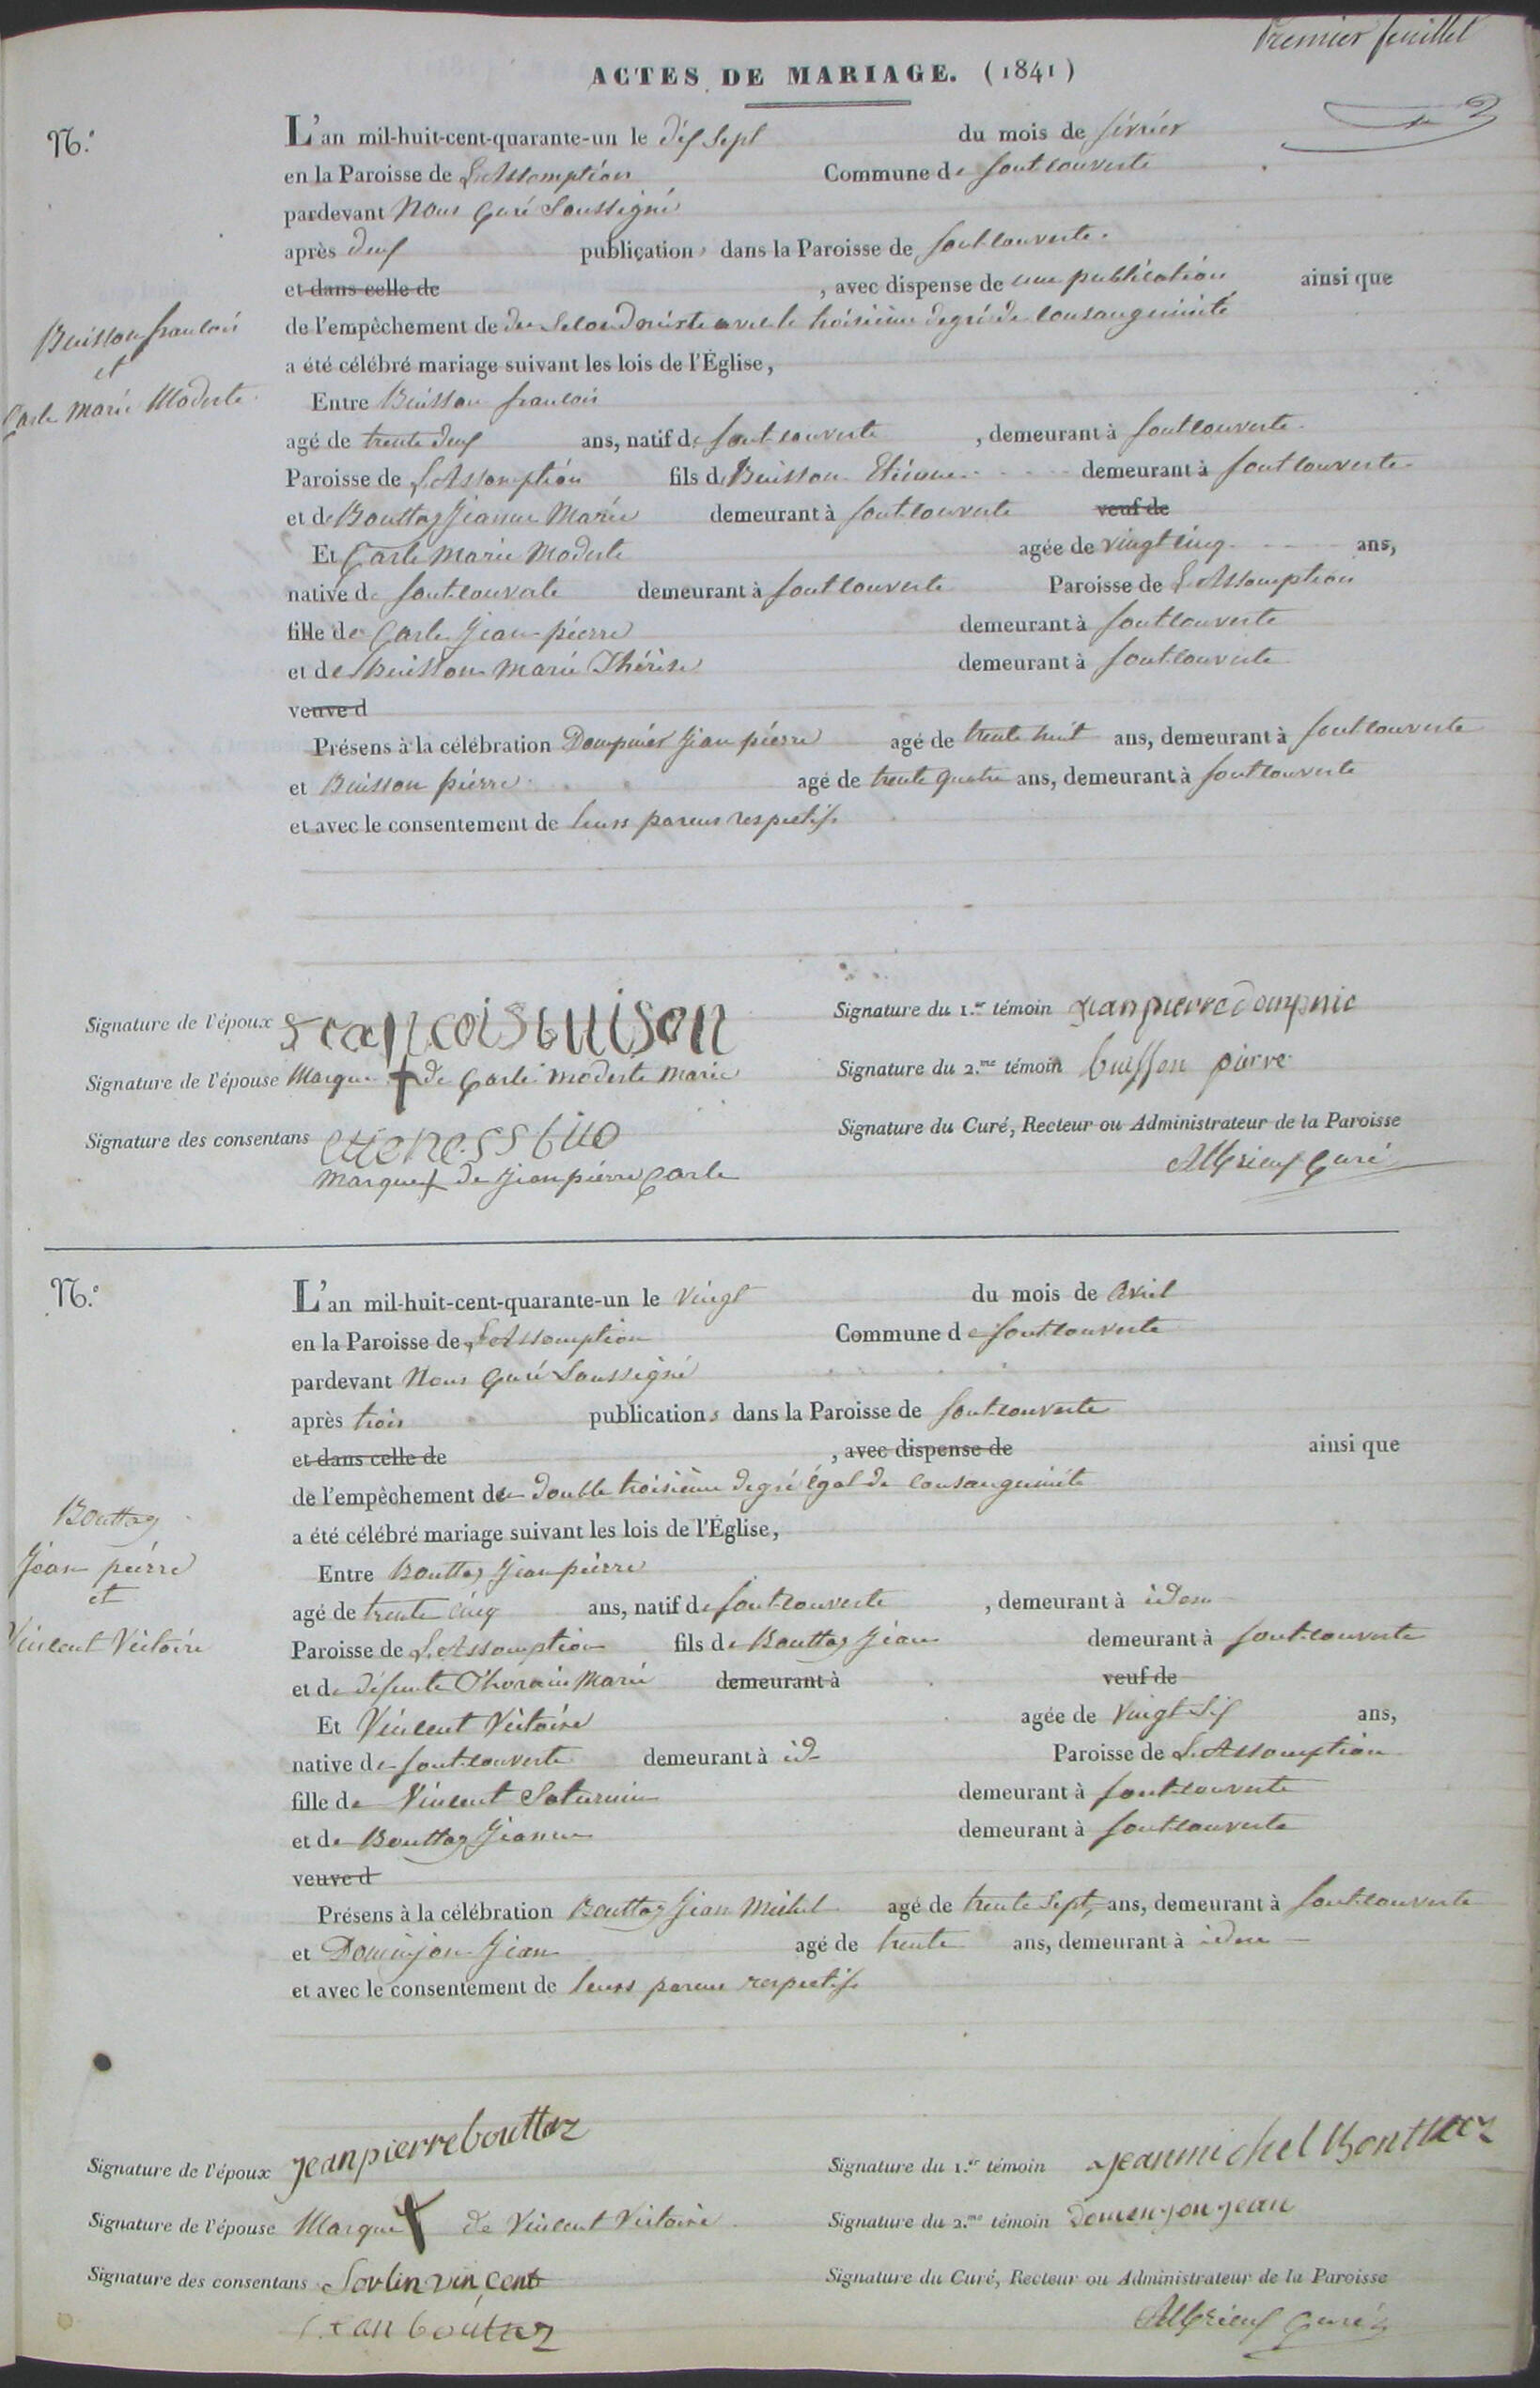 Premier feuillet
ACTES DE MARIAGE. (1841)
N.º
L'an mil-huit-cent-quarante-un le dix sept du mois de février
en la Paroisse de L'Assomption Commune de fontcouverte
pardevant Nous Curé Soussigné
après deux publications dans la Paroisse de fontcouverte.
et dans celle de , avec dispense de une publication ainsi que
de l'empêchement de du Second mixte avec le troisième degré de consanguinité
a été célébré mariage suivant les lois de l'Église,
Buisson francois
et
Carle Marie Modeste
Entre Buisson francois
agé de trente deux ans, natif de fontcouverte , demeurant à fontcouverte.
Paroisse de L'Assomption fils de Buisson Etienne demeurant à fontcouverte
et de Bouttaz Jeanne Marie demeurant à fontcouverte veuf de
Et Carle Marie Modeste agée de vingt cinq ans,
native de fontcouverte demeurant à fontcouverte Paroisse de L'Assomption
fille de Carle Jean pierre demeurant à fontcouverte
et de Buisson Marie Thérèse demeurant à fontcouverte
veuve d
Présens à la célébration Dompnier Jean pierre agé de trente huit ans, demeurant à fontcouverte
et Buisson pierre agé de trente quatre ans, demeurant à fontcouverte
et avec le consentement de leurs parens respectifs
Signature de l'époux francois buison
Signature du 1.er témoin jean pierre dompnie
Signature de l'épouse Marque + de Carle modeste Marie
Signature du 2.me témoin buisson pierre
Signature des consentans
Marque + de Jean pierre Carle
Signature du Curé, Recteur ou Administrateur de la Paroisse
Curé
N.º
L'an mil-huit-cent-quarante-un le vingt du mois de avril
en la Paroisse de L'Assomption Commune de fontcouverte
pardevant Nous Curé Soussigné
après trois publications dans la Paroisse de fontcouverte
et dans celle de , avec dispense de ainsi que
de l'empêchement de double troisième degré égal de consanguinité
a été célébré mariage suivant les lois de l'Église,
Bouttaz
Jean pierre
et
Vincent Victoire
Entre Bouttaz Jean pierre
agé de trente cinq ans, natif de fontcouverte , demeurant à idem
Paroisse de L'Assomption fils de Bouttaz Jean demeurant à fontcouverte
et de défunte Thorain Marie demeurant à veuf de
Et Vincent Victoire agée de vingt six ans,
native de fontcouverte demeurant à id Paroisse de L'Assomption
fille de Vincent Saturnin demeurant à fontcouverte
et de Bouttaz Jeanne demeurant à fontcouverte
veuve d
Présens à la célébration Bouttaz Jean Michel agé de trente sept ans, demeurant à fontcouverte
et Domenjon Jean agé de trente ans, demeurant à idem
et avec le consentement de leurs parens respectifs
Signature de l'époux jean pierre bouttaz
Signature du 1.er témoin jean michel Bouttaz
Signature de l'épouse Marque + de Vincent Victoire
Signature du 2.me témoin domenjon jean
Signature des consentans Sorlin vincent
jean bouttaz
Signature du Curé, Recteur ou Administrateur de la Paroisse
Curé